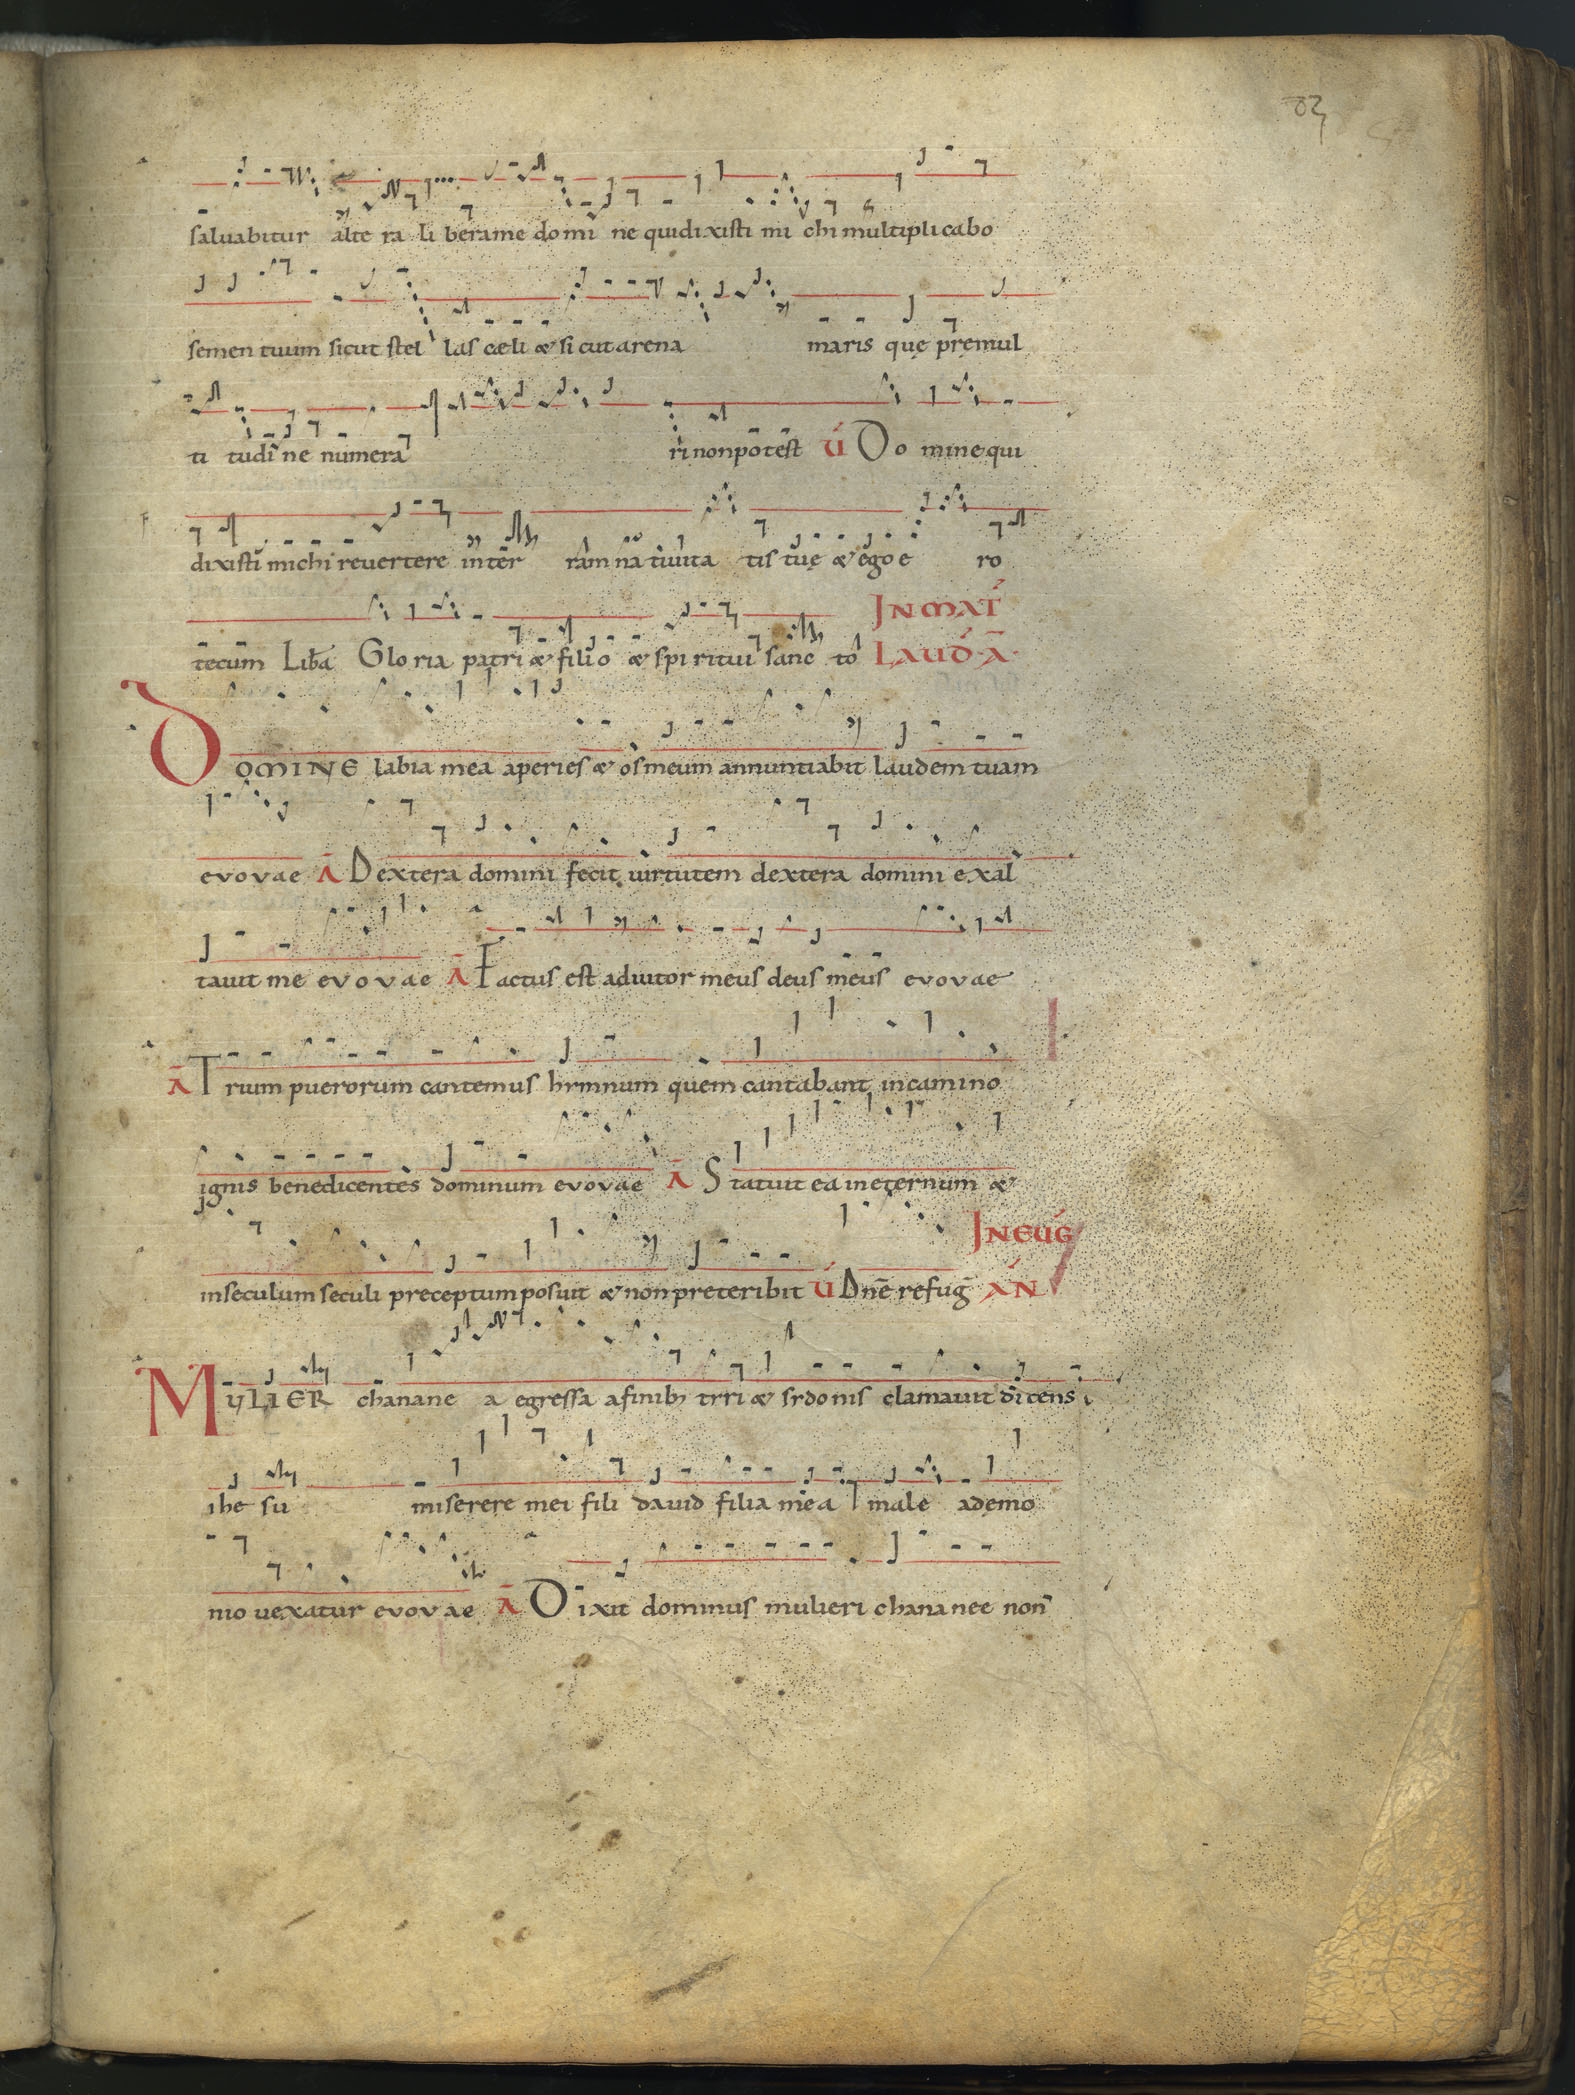 saluabitur alte ra li berame domi ne quidixisti mi chi multiplicabo
semen tuum sicut stel las cæli & si cut arena maris quę pręmul
ti tudi ne numera ri nonpotest V̓ Do mine qui
dixisti michi reuertere in ter ram na tiuita tis tuę & ego e ro
tecum Lib̄a Gloria patri & filio & spi ritui sanc to IN MAT̓
LAUD̓ A
DOMINE labia mea aperies & os meum annuntiabit laudem tuam
evovae A Dextera domini fecit uirtutem dextera domini exal
tauit me evovae A Factus est adiutor meus deus meus evovae
A Trium puerorum cantemus hymnum quem cantabant in camino
ignis benedicentes dominum evovae A Statuit ea in ęternum &
IN EUG̓
in seculum seculi preceptum posuit & non preteribit V̓ Dn̄e refuḡ AN̓
MULIER chanane a egressa a finib; tyri & sydonis clamauit dicens
ihe su miserere mei fili dauid filia mea male a dęmo
nio uexatur evovae A Dixit dominus mulieri chananee non